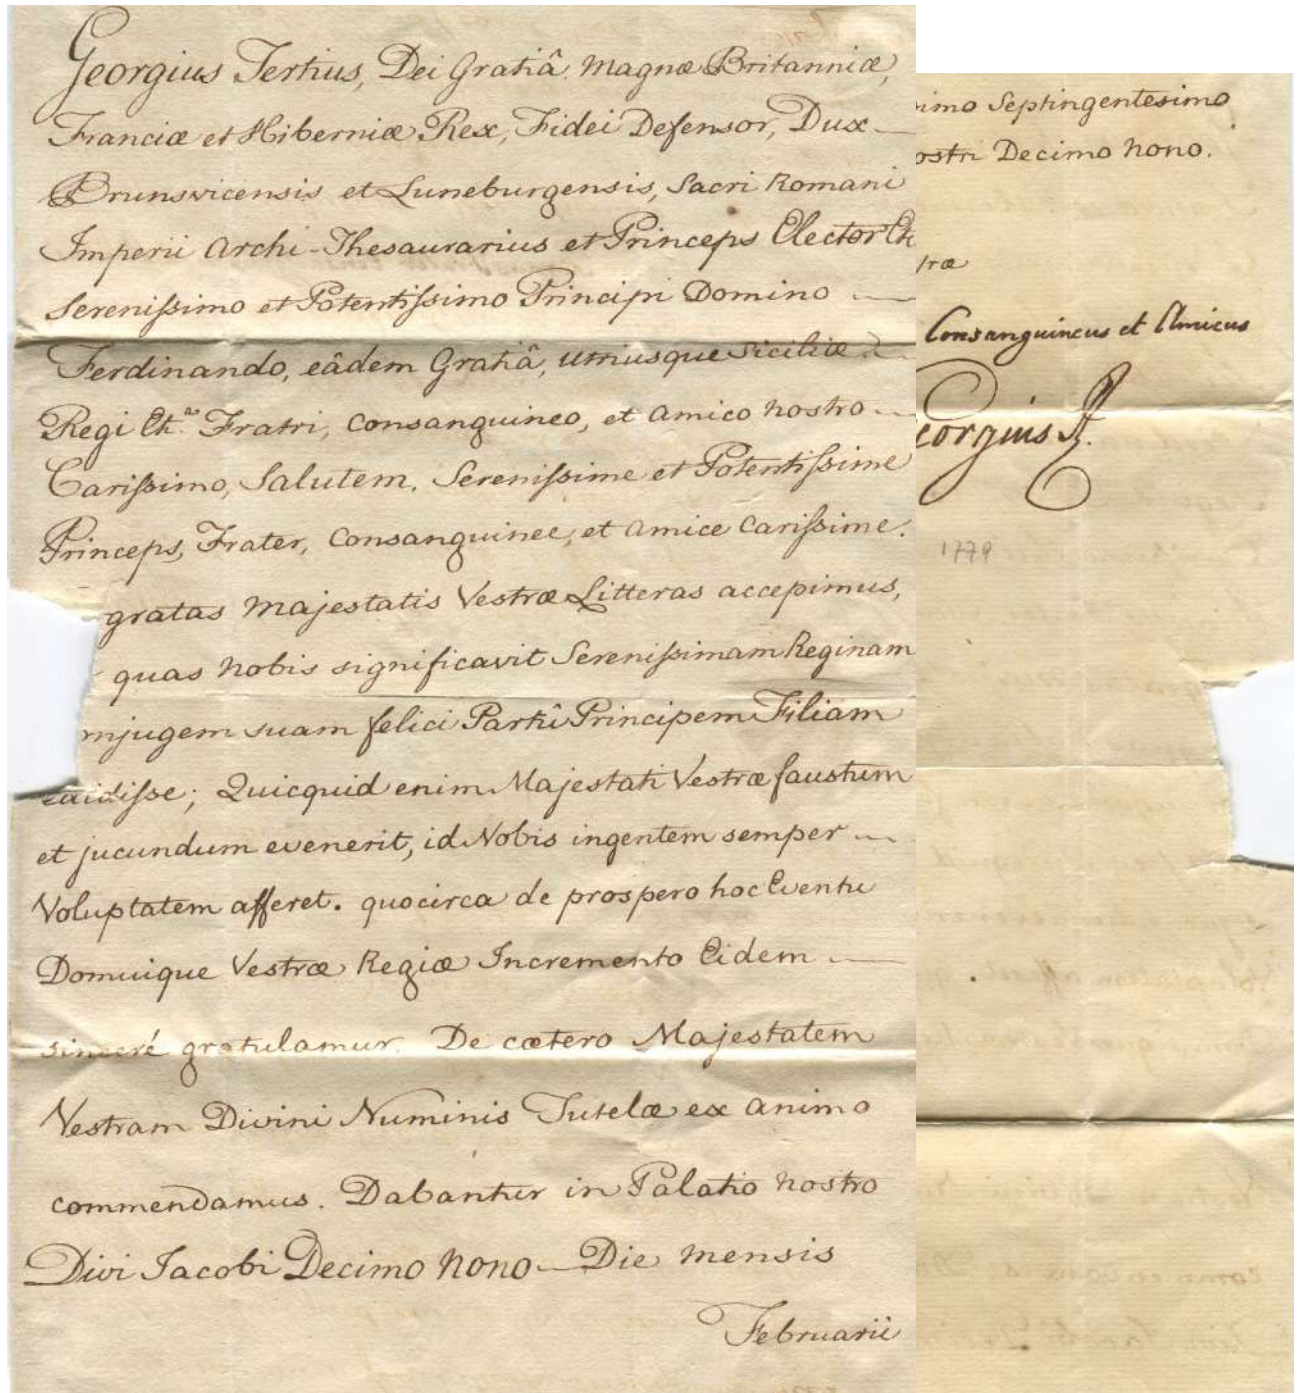 Georgius Tertius, Dei Gratiâ Magnæ Britanniæ,
Franciæ et Hiberniæ Rex, Fidei Defensor, Dux
Brunsvicensis et Luneburgensis, Sacri Romani
Imperii Archi-Thesaurarius et Princeps Elector &c
Serenissimo et Potentissimo Principi Domino
Ferdinando, eâdem Gratiâ, utriusque Siciliæ
Regi &c.ª Fratri, Consanguineo, et Amico nostro
Carissimo, Salutem. Serenissime et Potentissime
Princeps, Frater, Consanguinee, et Amice Carissime.
gratas Majestatis Vestræ Litteras accepimus,
quas Nobis significavit Serenissimam Reginam
njugem suam felici Partû Principem Filiam
idisse; Quicquid enim Majestati Vestræ faustum
et jucundum evenerit, id Nobis ingentem semper
Voluptatem afferet. quocirca de prospero hoc Eventu
Domuique Vestræ Regiæ Incremento Eidem
sinceré gratulamur. De cætero Majestatem
Vestram Divini Numinis Tutelæ ex animo
commendamus. Dabantur in Palatio nostro
Divi Jacobi Decimo nono Die mensis
Februarii
imo Septingentesimo
ostri Decimo nono.
træ
Consanguineus et Amicus
eorgius R.
1779